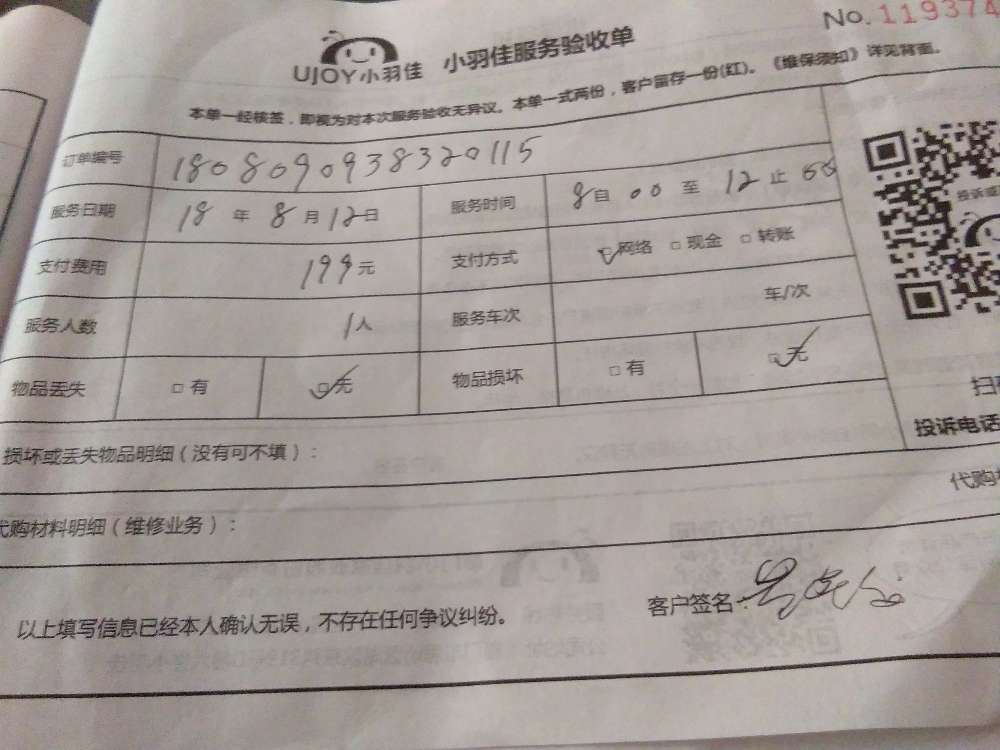 No.119374
UJOY小羽佳 小羽佳服务验收单
本单一经核签，即视为对本次服务验收无异议。本单一式两份，客户留存一份(红)。《维保须知》详见背面。
订单编号 180809093832 0115
服务日期 18 年 8 月 12 日 服务时间 8 自 00 至 12 止 00
支付费用 199 元 支付方式 ☑网络 □现金 □转账
服务人数 1人 服务车次 车/次
物品丢失 □有 ☑无 物品损坏 □有 ☑无
投诉或
扫
投诉电话
损坏或丢失物品明细（没有可不填）：
代购
代购材料明细（维修业务）：
以上填写信息已经本人确认无误，不存在任何争议纠纷。 客户签名：